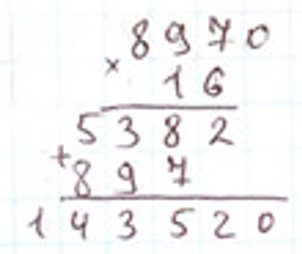 8970
×
16
5382
+
897
143520